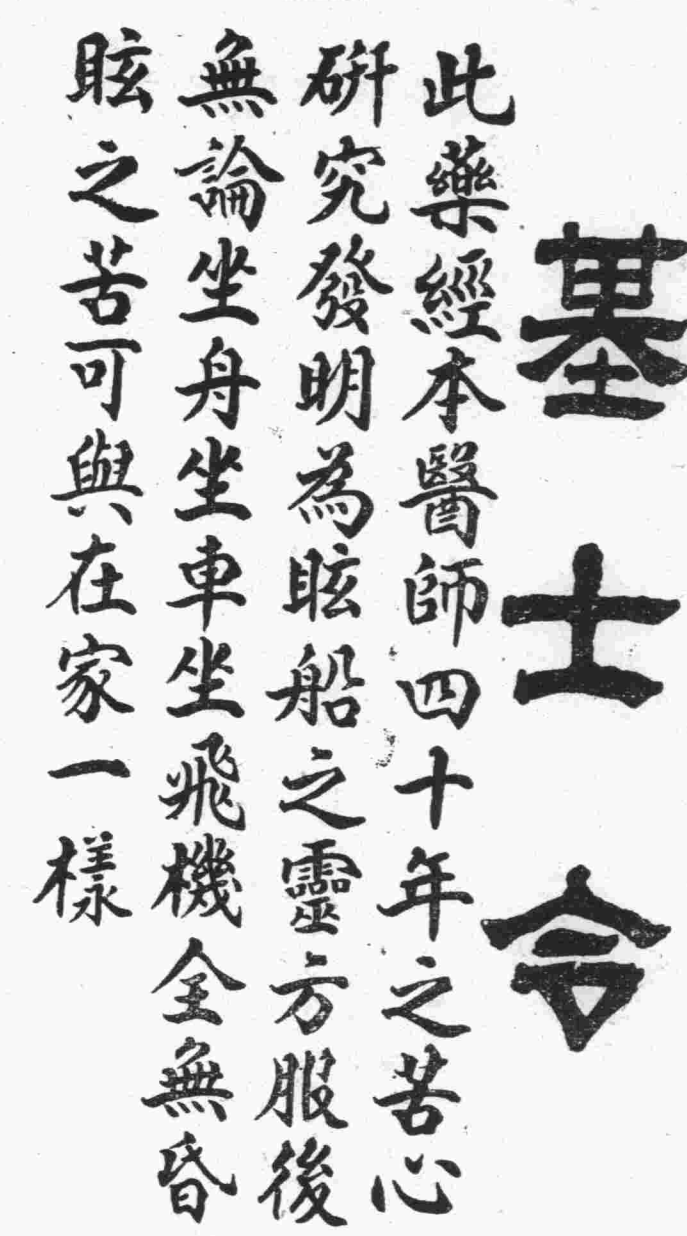 墨士令
此藥經本醫師四十年之苦心
研究發明為眩船之靈方服後
無論坐舟坐車坐飛機全無昏
眩之苦可與在家一樣